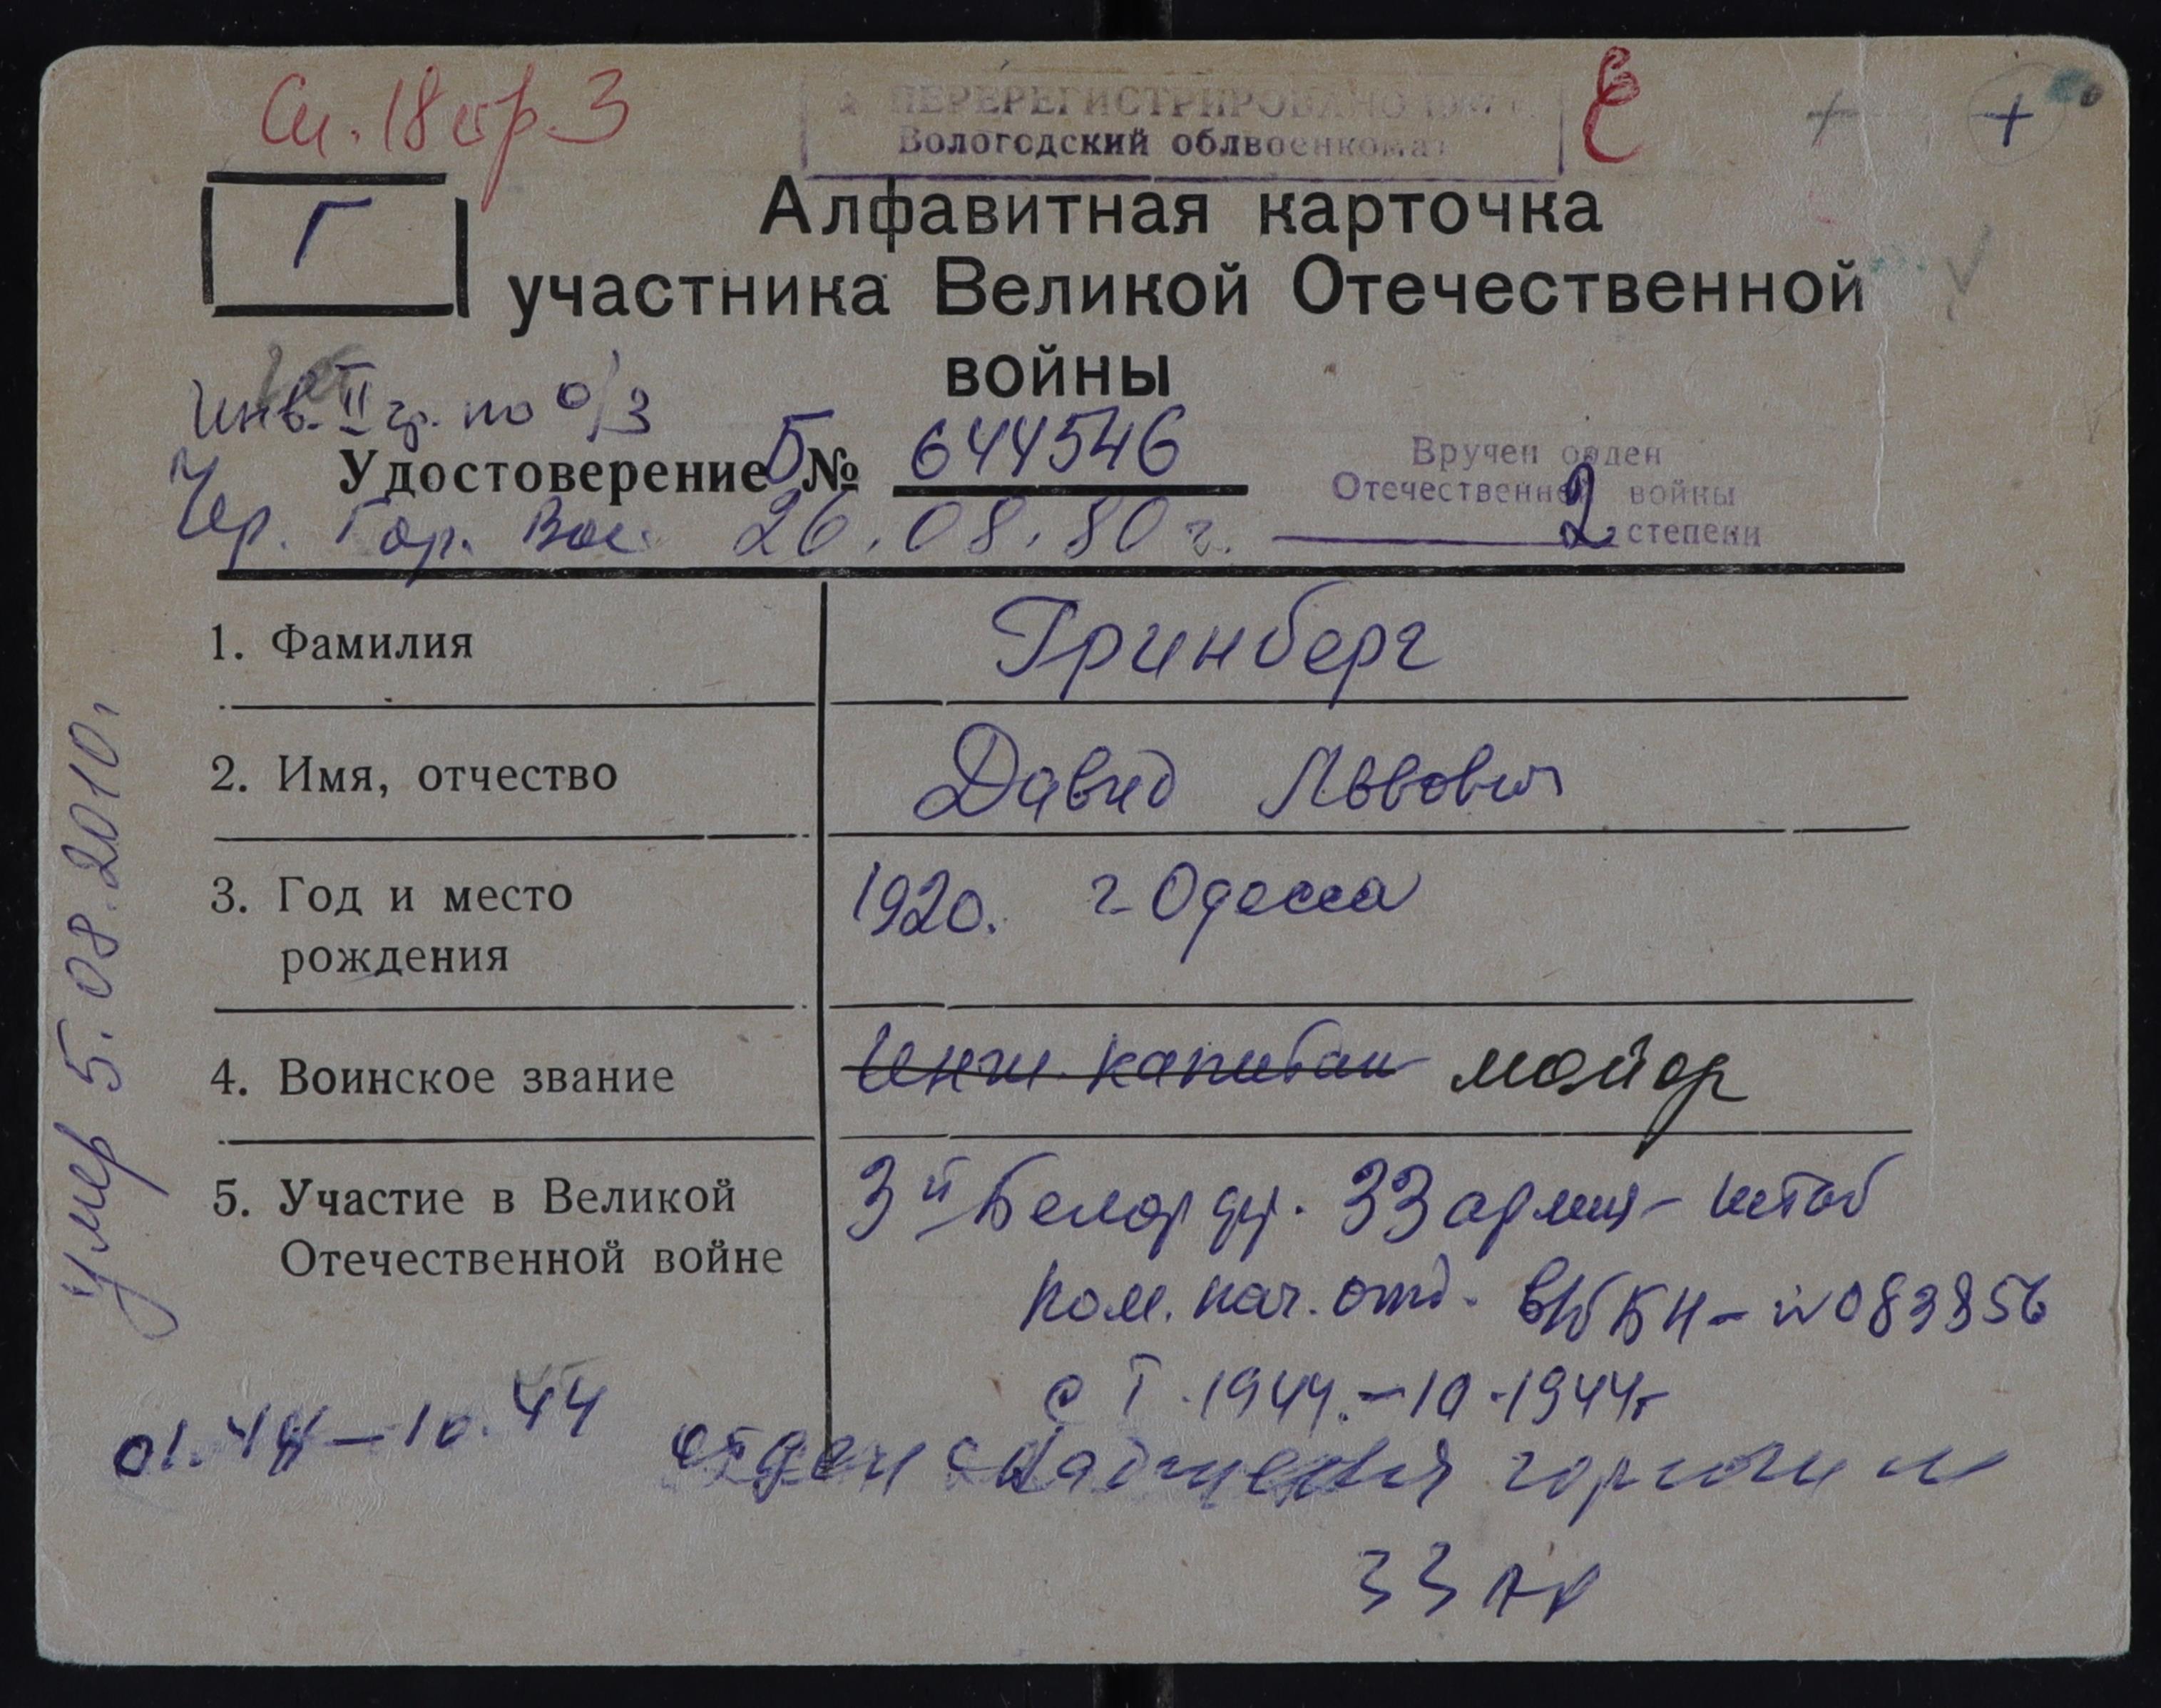 См. 18 стр 3
ПЕРЕРЕГИСТРИРОВАНО
Вологодский облвоенкомат
Г
Алфавитная карточка
участника Великой Отечественной
войны
Инв. II гр. по о/з
Удостоверение Б № 644546
Чер. Гор. Вое. 26.08.80 г.
Вручен орден
Отечественной войны
2 степени
1. Фамилия
Гринберг
2. Имя, отчество
Давид Львович
3. Год и место
рождения
1920. г. Одесса
4. Воинское звание
Инж. капитан майор
5. Участие в Великой
Отечественной войне
3й Белор фр. 33 армия - штаб
пом. нач. отд. - №083856
с I.1944. - 10.1944г
01.44 - 10.44
отдел снабжения горючим
33 А
умер 5.08.2010г